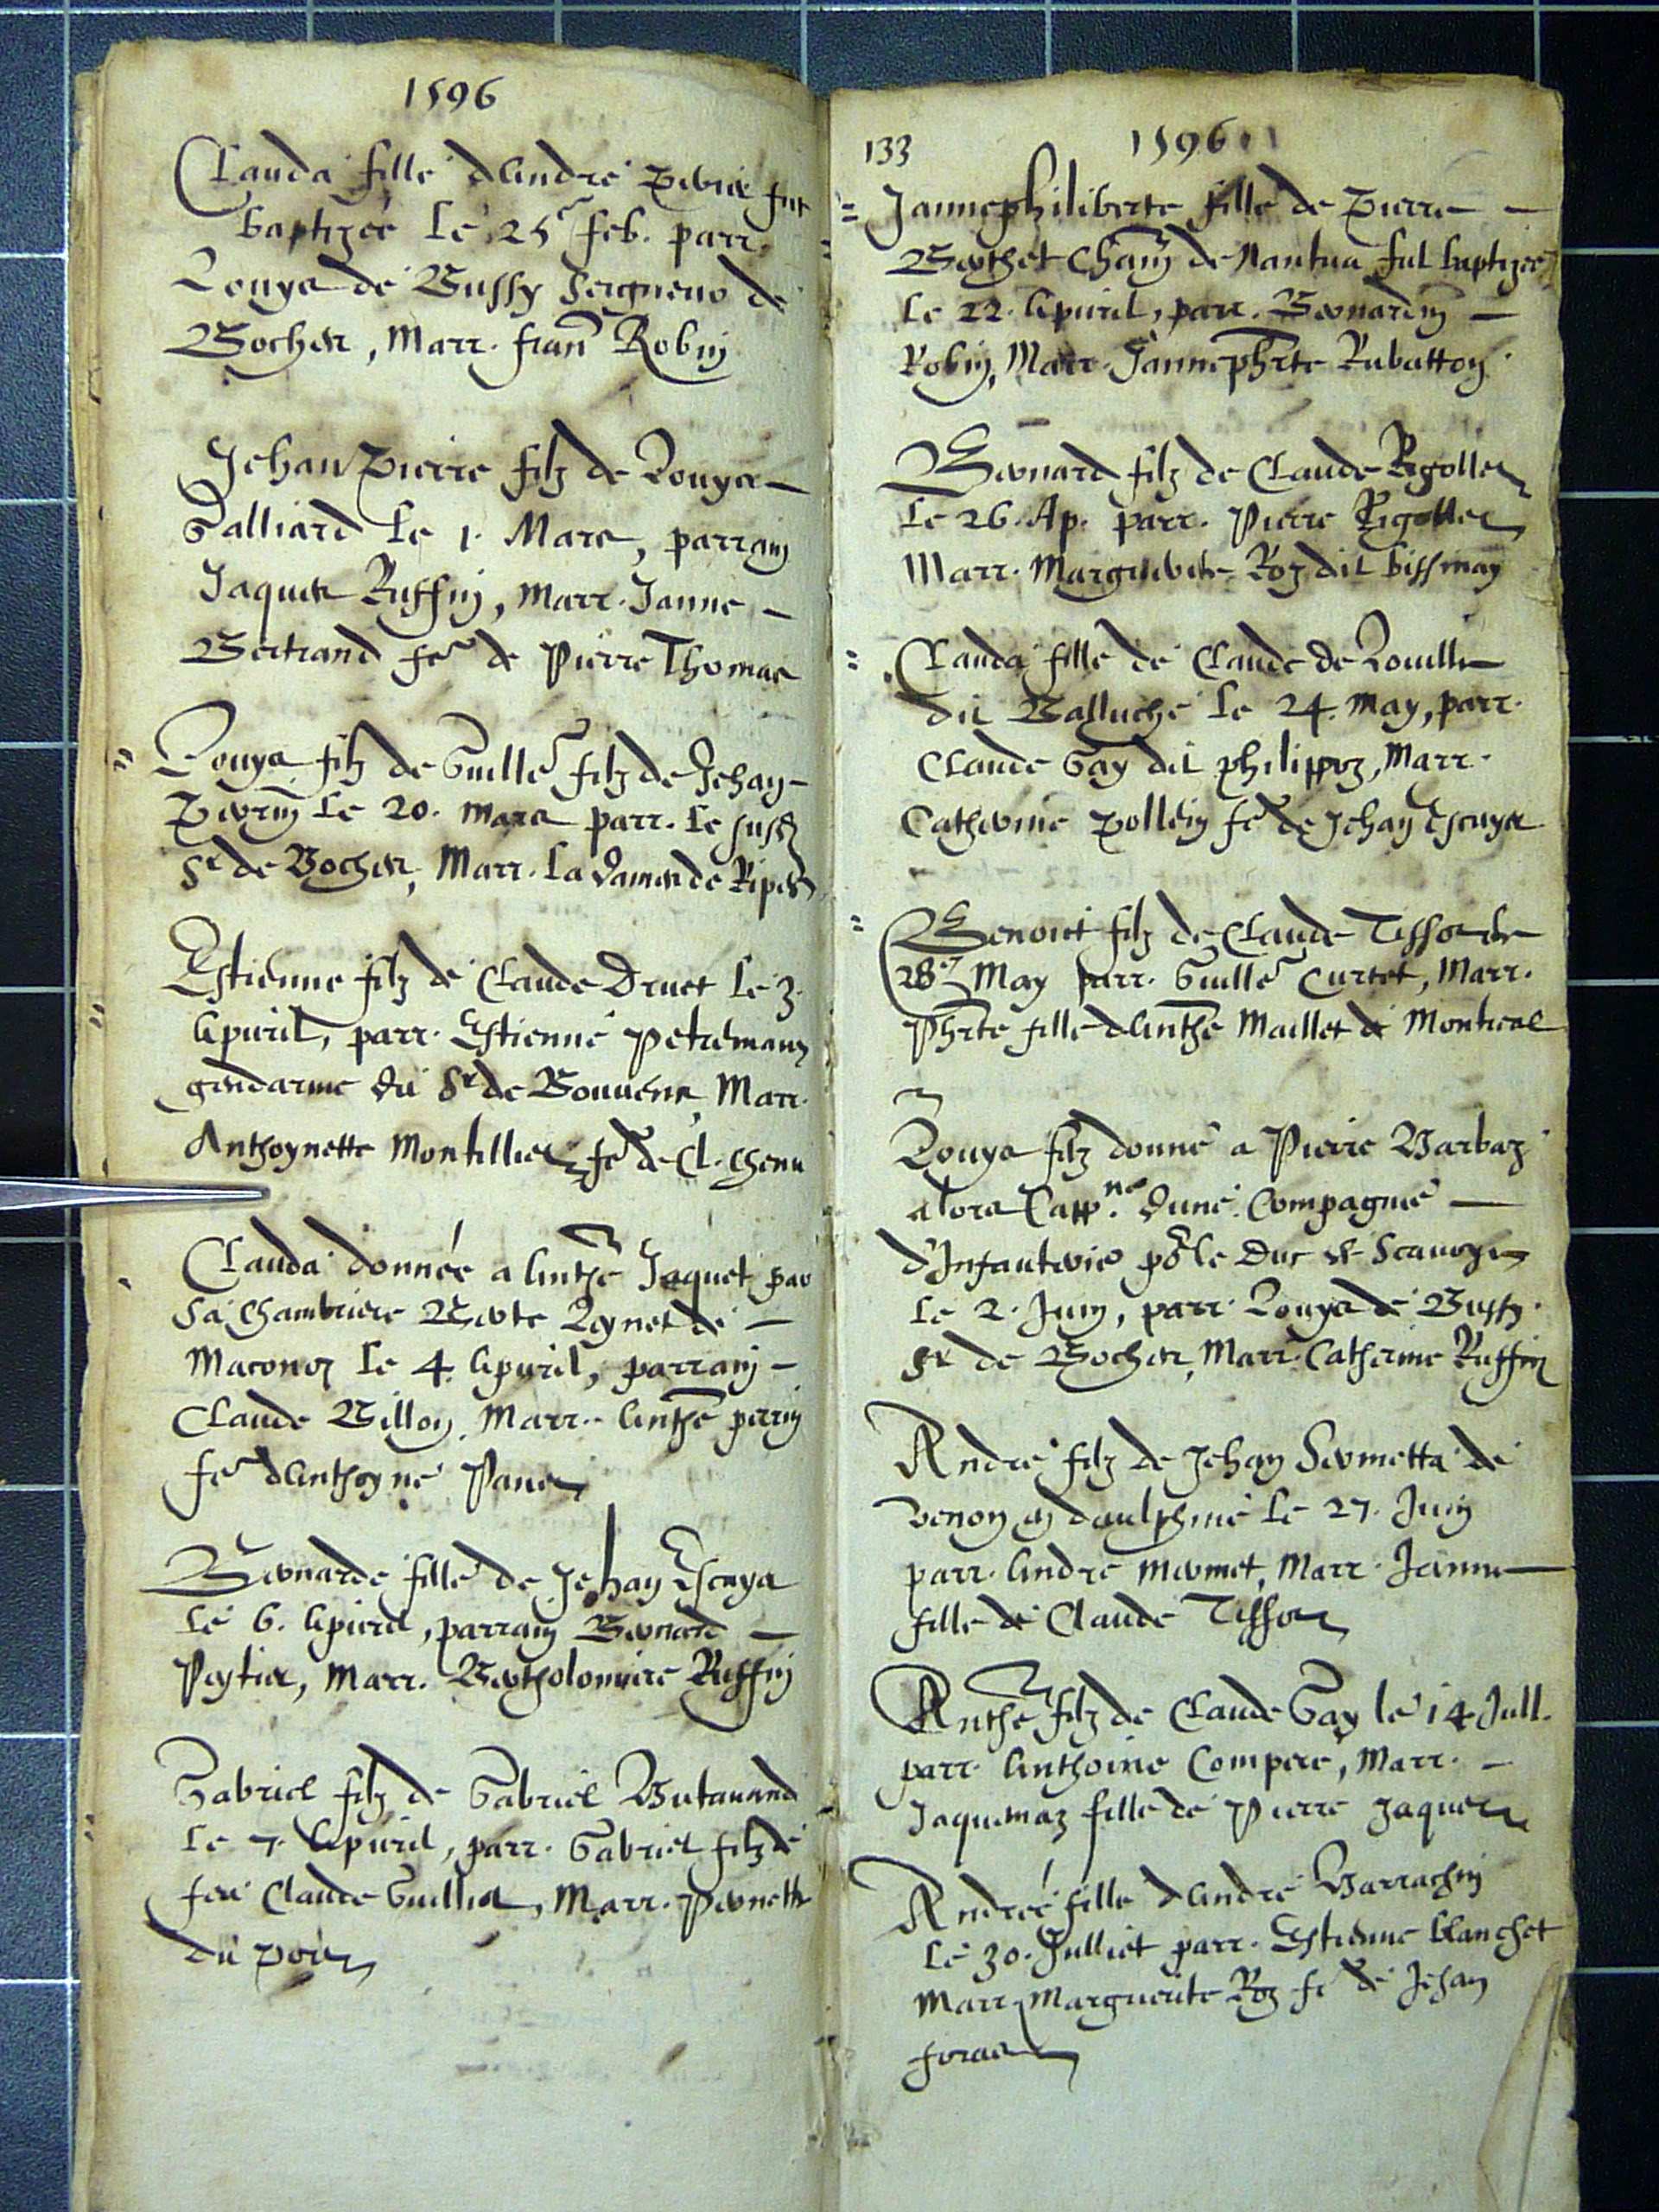 1596
Clauda fille d'André Perrier fut
baptizée le 25 feb. parr.
Louys de Bussy Seigneur de
Bocher, Marr. fran Robin
Jehan Pierre filz de Louys
Galliard le 1. Mars, parrain
Jaques Ruffin, Marr. Janne
Bertrand fe de Pierre Thomas
Louys filz de Guille filz de Jehan
Perrin le 20. mars parr. le susd
Sr de Bocher, Marr. la dame de
Estienne filz de Claude Druet le 3.
Apuril, parr. Estienne Petremans
gendarme du Sr de Bouuens, Marr.
Anthoynette Montillier fe de Cl. Chenu
Clauda donnée a Anthe Jaquet par
sa chambriere Berte Reynet de
Maconod le 4. Apuril, parrain
Claude Billon, Marr. Anthe perrin
fe d'Anthoyne Panes
Bernarde fille de Jehan Escuyer
le 6. Apuril, parrain Bernard
Peytier, Marr. Bertholomiere Ruffin
Gabriel filz de Gabriel Butauand
le 7. Apuril, parr. Gabriel filz de
feu Claude Guillier, Marr. Pernette
du
133
1596
Jannephiliberte fille de Pierre
Berthet de Nantua fut baptizee
le 22. Apuril, parr. Bernardin
Robin, Marr. Jannephrte Rubatton
Bernard filz de Claude Rigollet
le 26. Ap. parr. Pierre Rigollet
Marr. Marguerite Roz dit bissmay
Clauda fille de Claude de Rouille
dit Balluche le 24. May, parr.
Claude Gay dit philippoz, Marr.
Catherine Pollein fe de Jehan Escuyer
Benoict filz de Claude Tissot le
28. May parr. Guille Curtet, Marr.
Phrte fille d'Anthe Maillet de Montreal
Louys filz donné a Pierre Barbaz
alors Capp.ne d'une Compagnie
d'Infanterie por le Duc de Scauoye
le 2. Juin, parr. Louys de Bussy
Sr de Bocher, Marr. Catherine Ruffin
André filz de Jehan Sermetta de
en daulphiné le 27. Juin
parr. André mermet, Marr. Janne
fille de Claude Tissot
Anthe filz de Claude Gay le 14 Jull.
parr. Anthoine Compere, Marr.
Jaquemaz fille de Pierre Jaquet
Andrée fille d'André Barrachin
le 30. Julliet parr. Estienne blanchet
Marr. Marguerite Roz fe de Jehan
foras